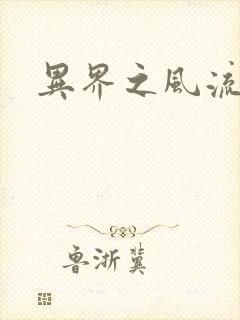 異界之風流
魯浙冀